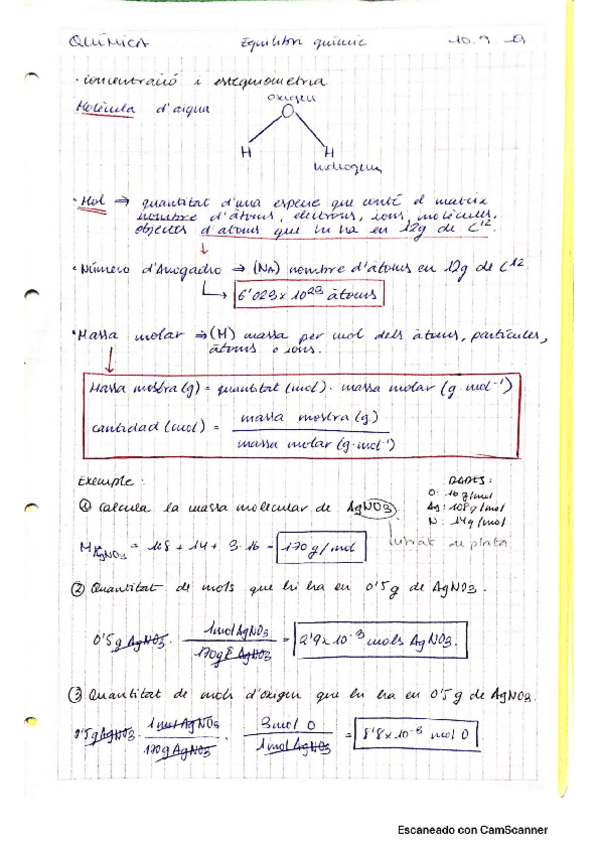 QUÍMICA Equilibri químic 10.9.19
· concentració i estequiometria
Molècula d'aigua
oxigen
O
H H
hidrogen
· Mol → quantitat d'una espècie que conté el mateix
nombre d'àtoms, electrons, ions, molècules,
objectes d'àtoms que hi ha en 12g de C¹².
· Número d'Avogadro → (NA) nombre d'àtoms en 12g de C¹²
6'023 x 10²³ àtoms
· Massa molar → (M) massa per mol dels àtoms, partícules,
àtoms o ions.
Massa mostra (g) = quantitat (mol) · massa molar (g·mol⁻¹)
cantidad (mol) = massa mostra (g) / massa molar (g·mol⁻¹)
Exemple:
DADES:
O: 16 g/mol
Ag: 108 g/mol
N: 14 g/mol
① Calcula la massa molecular de AgNO3.
M AgNO3 = 108 + 14 + 3·16 = 170 g/mol
nitrat de plata
② Quantitat de mols que hi ha en 0'5g de AgNO3.
0'5g AgNO3 · 1mol AgNO3 / 170g AgNO3 = 2'9x10⁻³ mols AgNO3.
③ Quantitat de mols d'oxigen que hi ha en 0'5g de AgNO3.
0'5g AgNO3 · 1mol AgNO3 / 170g AgNO3 · 3mol O / 1mol AgNO3 = 8'8x10⁻³ mol O
Escaneado con CamScanner